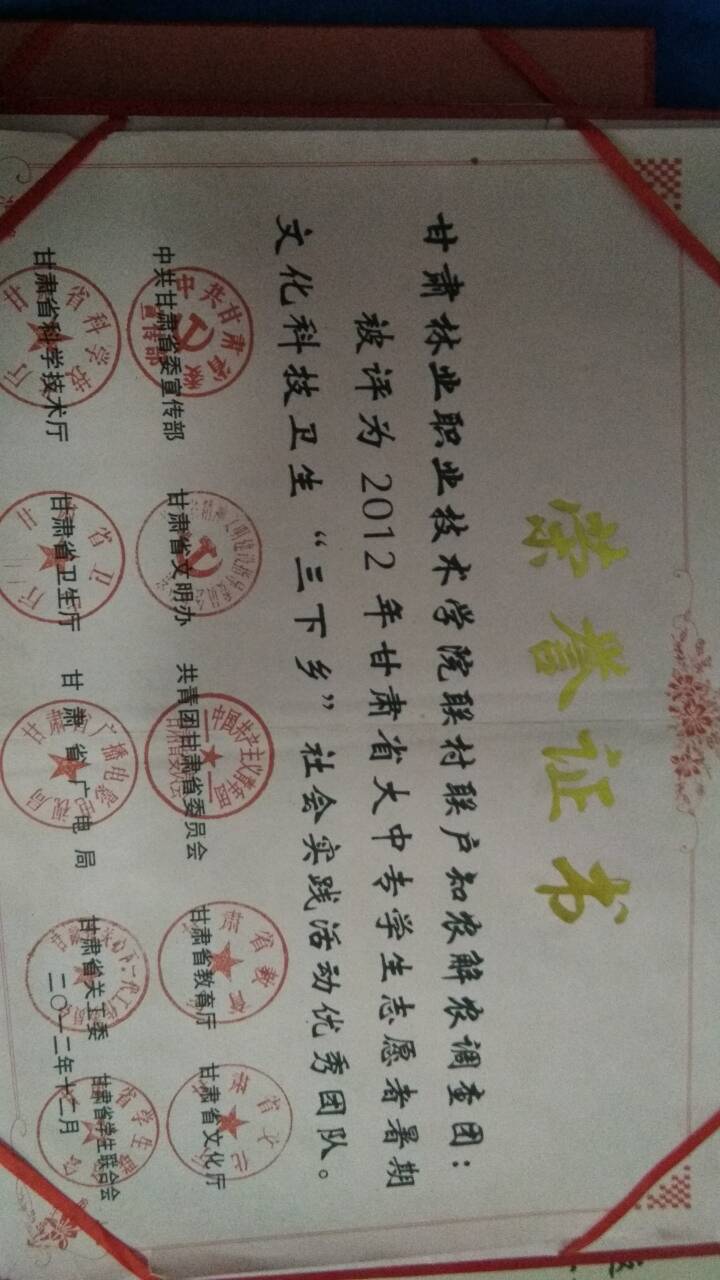 荣誉证书
甘肃林业职业技术学院联村联户知农解农调查团：
被评为2012年甘肃省大中专学生志愿者暑期
文化科技卫生“三下乡”社会实践活动优秀团队。
中共甘肃省委宣传部 甘肃省文明办 共青团甘肃省委员会 甘肃省教育厅 甘肃省文化厅
甘肃省科学技术厅 甘肃省卫生厅 甘肃省广电局 甘肃省关工委 甘肃省学生联合会
二〇一二年十二月